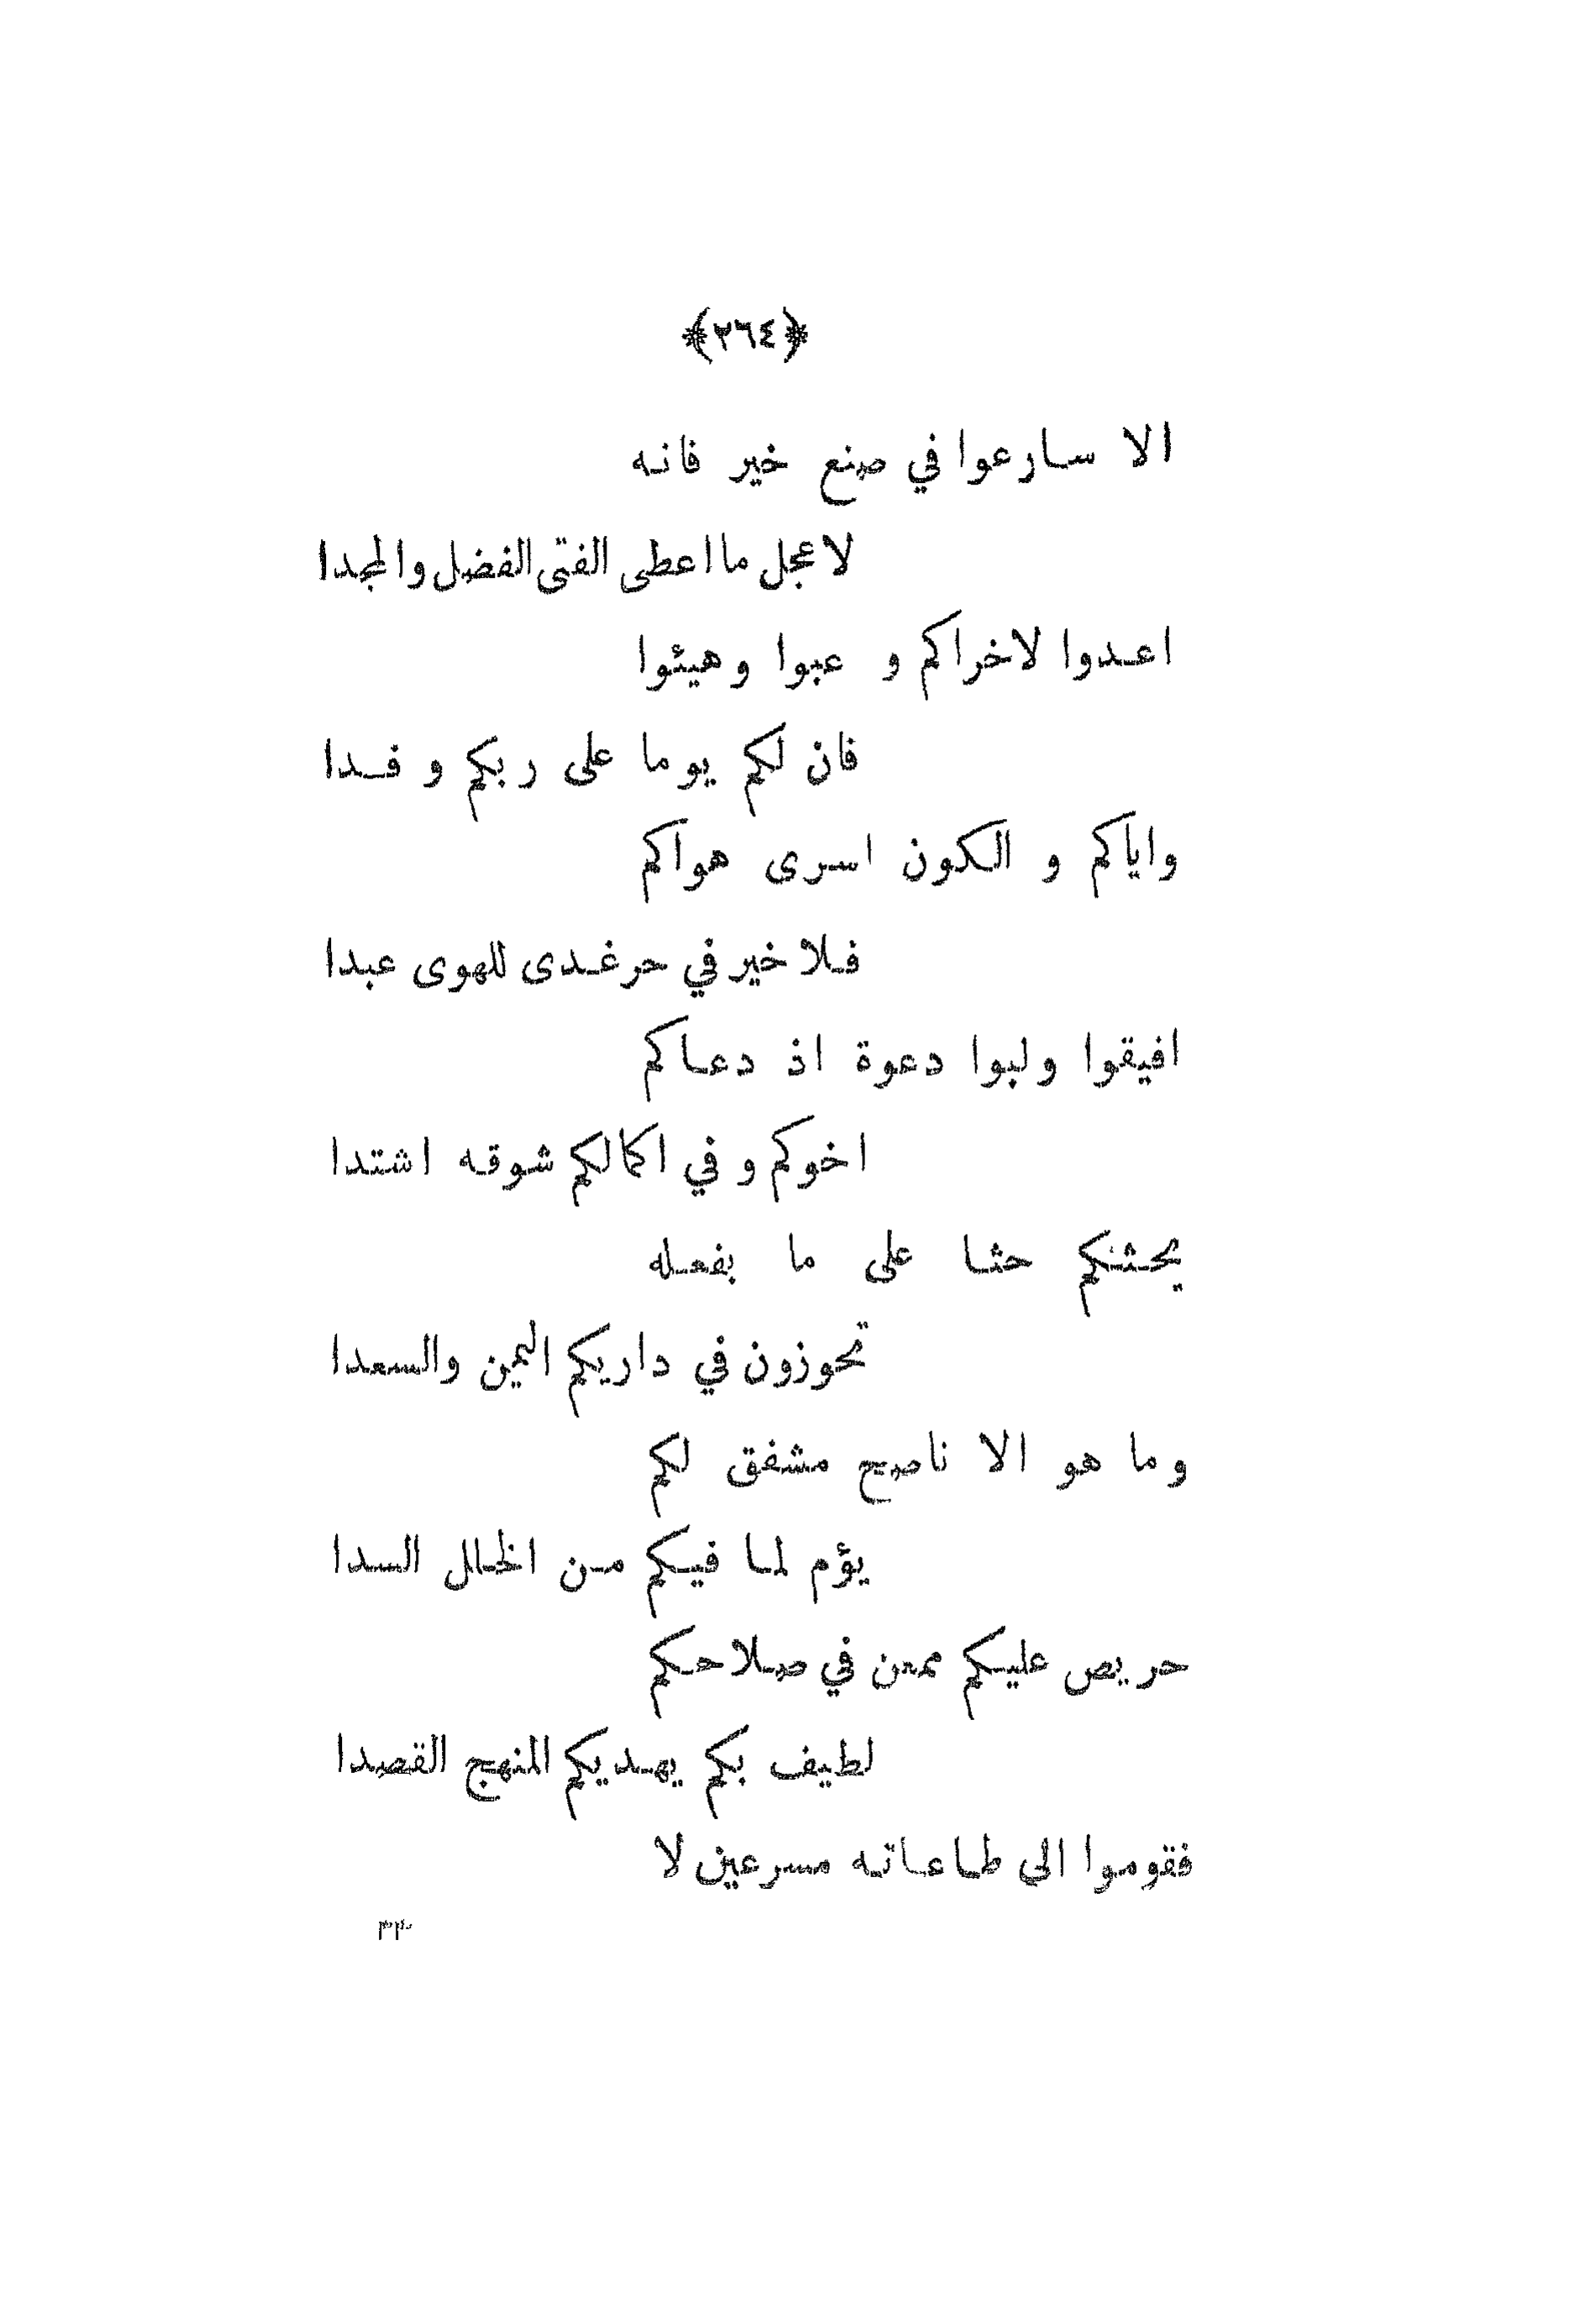 ﴿٢٦٤﴾
الا سارعوا في صنع خير فانه
لاعجل ما اعطى الفتى الفضل والمجدا
اعدوا لاخراكم و عبوا وهيئوا
فان لكم يوما على ربكم وفدا
واياكم و الكون اسرى هواكم
فلا خير في حر غدى للهوى عبدا
افيقوا ولبوا دعوة اذ دعاكم
اخوكم و في اكمالكم شوقه اشتدا
يحثنكم حثا على ما بفعله
تحوزون في داريكم اليمن والسعدا
وما هو الا ناصح مشفق لكم
يؤم لما فيكم من الخلل السدا
حريص عليكم ممعن في صلاحكم
لطيف بكم يهديكم المنهج القصدا
فقوموا الى طاعاته مسرعين لا